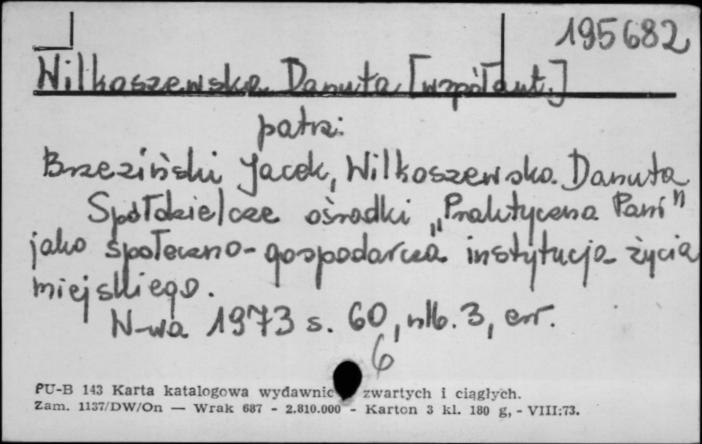 195682
Wilkoszewska Danuta [współaut.]
patrz:
Brzeziński Jacek, Wilkoszewska Danuta
Spółdzielcze ośrodki „Praktyczna Pani"
jako społeczno-gospodarcza instytucja życia
miejskiego.
W-wa 1973 s. 60, nlb. 3, err.
6
PU-B 143 Karta katalogowa wydawnic zwartych i ciągłych.
Zam. 1137/DW/On — Wrak 687 - 2.810.000 - Karton 3 kl. 180 g, - VIII:73.